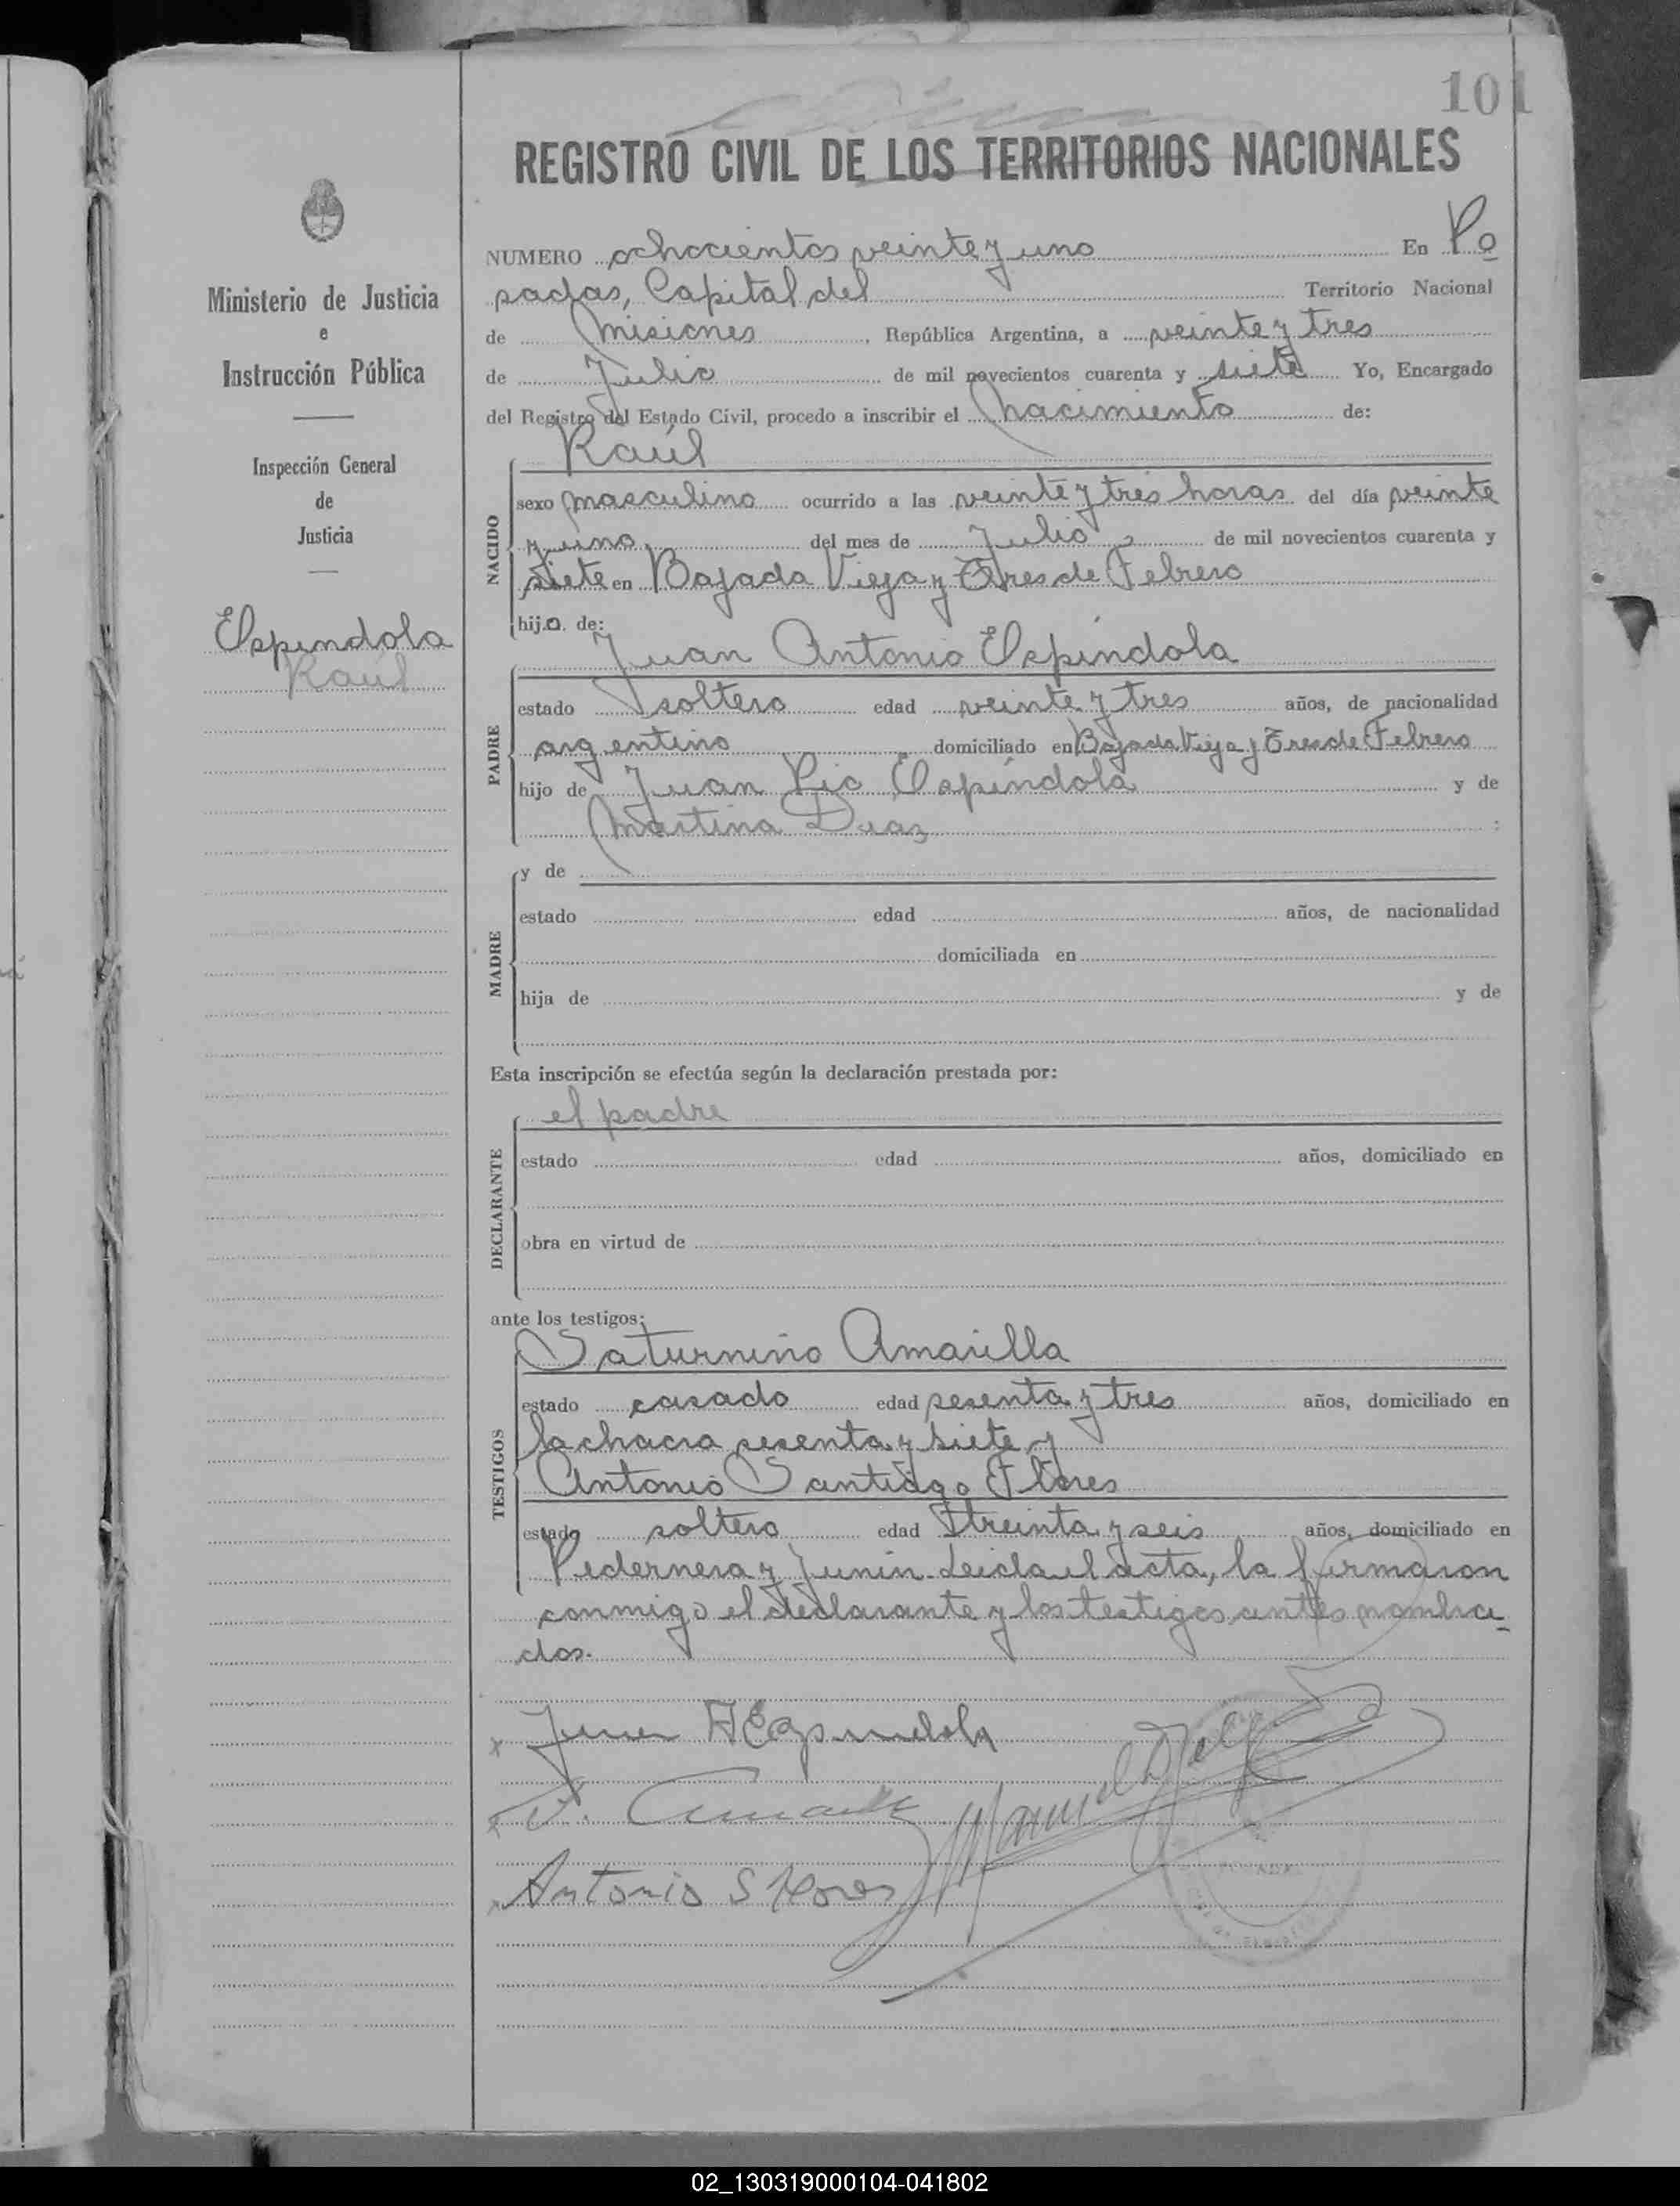 101
REGISTRO CIVIL DE LOS TERRITORIOS NACIONALES
Ministerio de Justicia
e
Instrucción Pública
Inspección General
de
Justicia
Espíndola
Raúl
NUMERO ochocientos veinte y uno En Po
sadas, Capital del Territorio Nacional
de Misiones, República Argentina, a veinte y tres
de Julio de mil novecientos cuarenta y siete Yo, Encargado
del Registro del Estado Civil, procedo a inscribir el nacimiento de:
Raúl
NACIDO
sexo masculino ocurrido a las veinte y tres horas del día veinte
y uno del mes de Julio de mil novecientos cuarenta y
siete en Bajada Vieja y Tres de Febrero
hijo de:
Juan Antonio Espíndola
PADRE
estado soltero edad veinte y tres años, de nacionalidad
argentino domiciliado en Bajada Vieja y Tres de Febrero
hijo de Juan Pío Espíndola y de
Martina Diaz :
MADRE
y de
estado edad años, de nacionalidad
domiciliada en
hija de y de
Esta inscripción se efectúa según la declaración prestada por:
el padre
DECLARANTE
estado edad años, domiciliado en
obra en virtud de
ante los testigos:
Saturnino Amarilla
TESTIGOS
estado casado edad sesenta y tres años, domiciliado en
la chacra sesenta y siete y
Antonio Santiago Flores
estado soltero edad treinta y seis años, domiciliado en
Pedernera y Junín. Leida el acta, la firmaron
conmigo el declarante y los testigos antes nombra
dos.
x Juan A Espindola
x S. Amarilla
x Antonio S Flores
Manuel
02_130319000104-041802